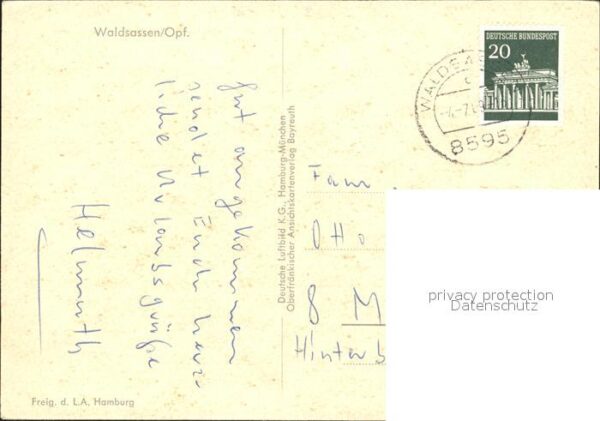 Waldsassen/Opf.
gut angekommen
sendet Euch herz-
liche Urlaubsgrüße
Helmuth
Freig. d. L.A. Hamburg
Deutsche Luftbild K.G., Hamburg-München
Oberfränkischer Ansichtskartenverlag Bayreuth
DEUTSCHE BUNDESPOST
20
8595
Fam.
Otto
8 M
privacy protection
Datenschutz